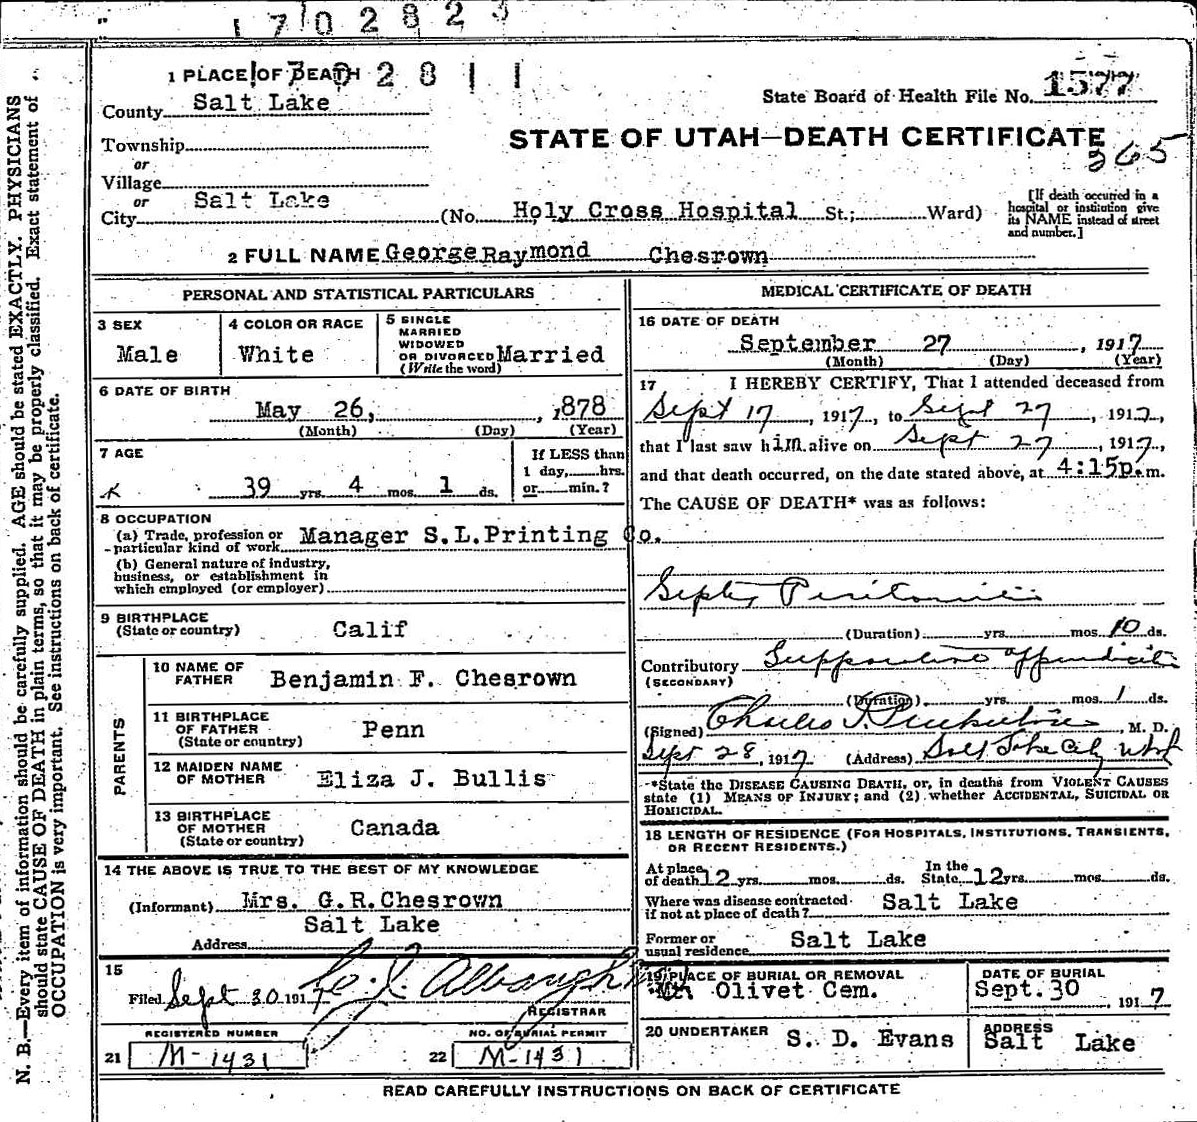 1702823
1 PLACE OF DEATH 1702811
County Salt Lake
State Board of Health File No. 1577
STATE OF UTAH—DEATH CERTIFICATE
265
Township
or
Village
or
City Salt Lake (No. Holy Cross Hospital St.; Ward)
[If death occurred in a
hospital or institution give
its NAME instead of street
and number.]
2 FULL NAME George Raymond Chesrown
PERSONAL AND STATISTICAL PARTICULARS
3 SEX
Male
4 COLOR OR RACE
White
5 SINGLE
MARRIED
WIDOWED
OR DIVORCED Married
(Write the word)
6 DATE OF BIRTH
May 26, , 1878
(Month) (Day) (Year)
7 AGE
39 yrs. 4 mos. 1 ds.
If LESS than
1 day, hrs.
or min.?
8 OCCUPATION
(a) Trade, profession or
particular kind of work Manager S.L.Printing Co.
(b) General nature of industry,
business, or establishment in
which employed (or employer)
9 BIRTHPLACE
(State or country) Calif
PARENTS
10 NAME OF
FATHER Benjamin F. Chesrown
11 BIRTHPLACE
OF FATHER
(State or country) Penn
12 MAIDEN NAME
OF MOTHER Eliza J. Bullis
13 BIRTHPLACE
OF MOTHER
(State or country) Canada
14 THE ABOVE IS TRUE TO THE BEST OF MY KNOWLEDGE
(Informant) Mrs. G.R.Chesrown
Salt Lake
Address
15
Filed Sept 30 1917
REGISTRAR
REGISTERED NUMBER
21 M-1431
NO. OF BURIAL PERMIT
22 M-1431
MEDICAL CERTIFICATE OF DEATH
16 DATE OF DEATH
September 27 , 1917
(Month) (Day) (Year)
17 I HEREBY CERTIFY, That I attended deceased from
Sept 17 , 1917, to Sept 27 , 1917,
that I last saw him alive on Sept 27 , 1917,
and that death occurred, on the date stated above, at 4:15p.m.
The CAUSE OF DEATH* was as follows:
Septic Peritonitis
(Duration) yrs. mos. 10 ds.
Contributory Suppurative appendicitis
(SECONDARY)
(Duration) yrs. mos. 1 ds.
(Signed) Charles , M. D.
Sept 28, 1917 (Address) Salt Lake City Utah
*State the DISEASE CAUSING DEATH, or, in deaths from VIOLENT CAUSES
state (1) MEANS OF INJURY; and (2) whether ACCIDENTAL, SUICIDAL OR
HOMICIDAL.
18 LENGTH OF RESIDENCE (FOR HOSPITALS, INSTITUTIONS, TRANSIENTS,
OR RECENT RESIDENTS.)
At place
of death 12 yrs. mos. ds.
In the
State 12 yrs. mos. ds.
Where was disease contracted
if not at place of death? Salt Lake
Former or
usual residence Salt Lake
19 PLACE OF BURIAL OR REMOVAL
Mt. Olivet Cem.
DATE OF BURIAL
Sept. 30 1917
20 UNDERTAKER S. D. Evans
ADDRESS
Salt Lake
READ CAREFULLY INSTRUCTIONS ON BACK OF CERTIFICATE
N. B.—Every item of information should be carefully supplied. AGE should be stated EXACTLY. PHYSICIANS
should state CAUSE OF DEATH in plain terms, so that it may be properly classified. Exact statement of
OCCUPATION is very important. See instructions on back of certificate.